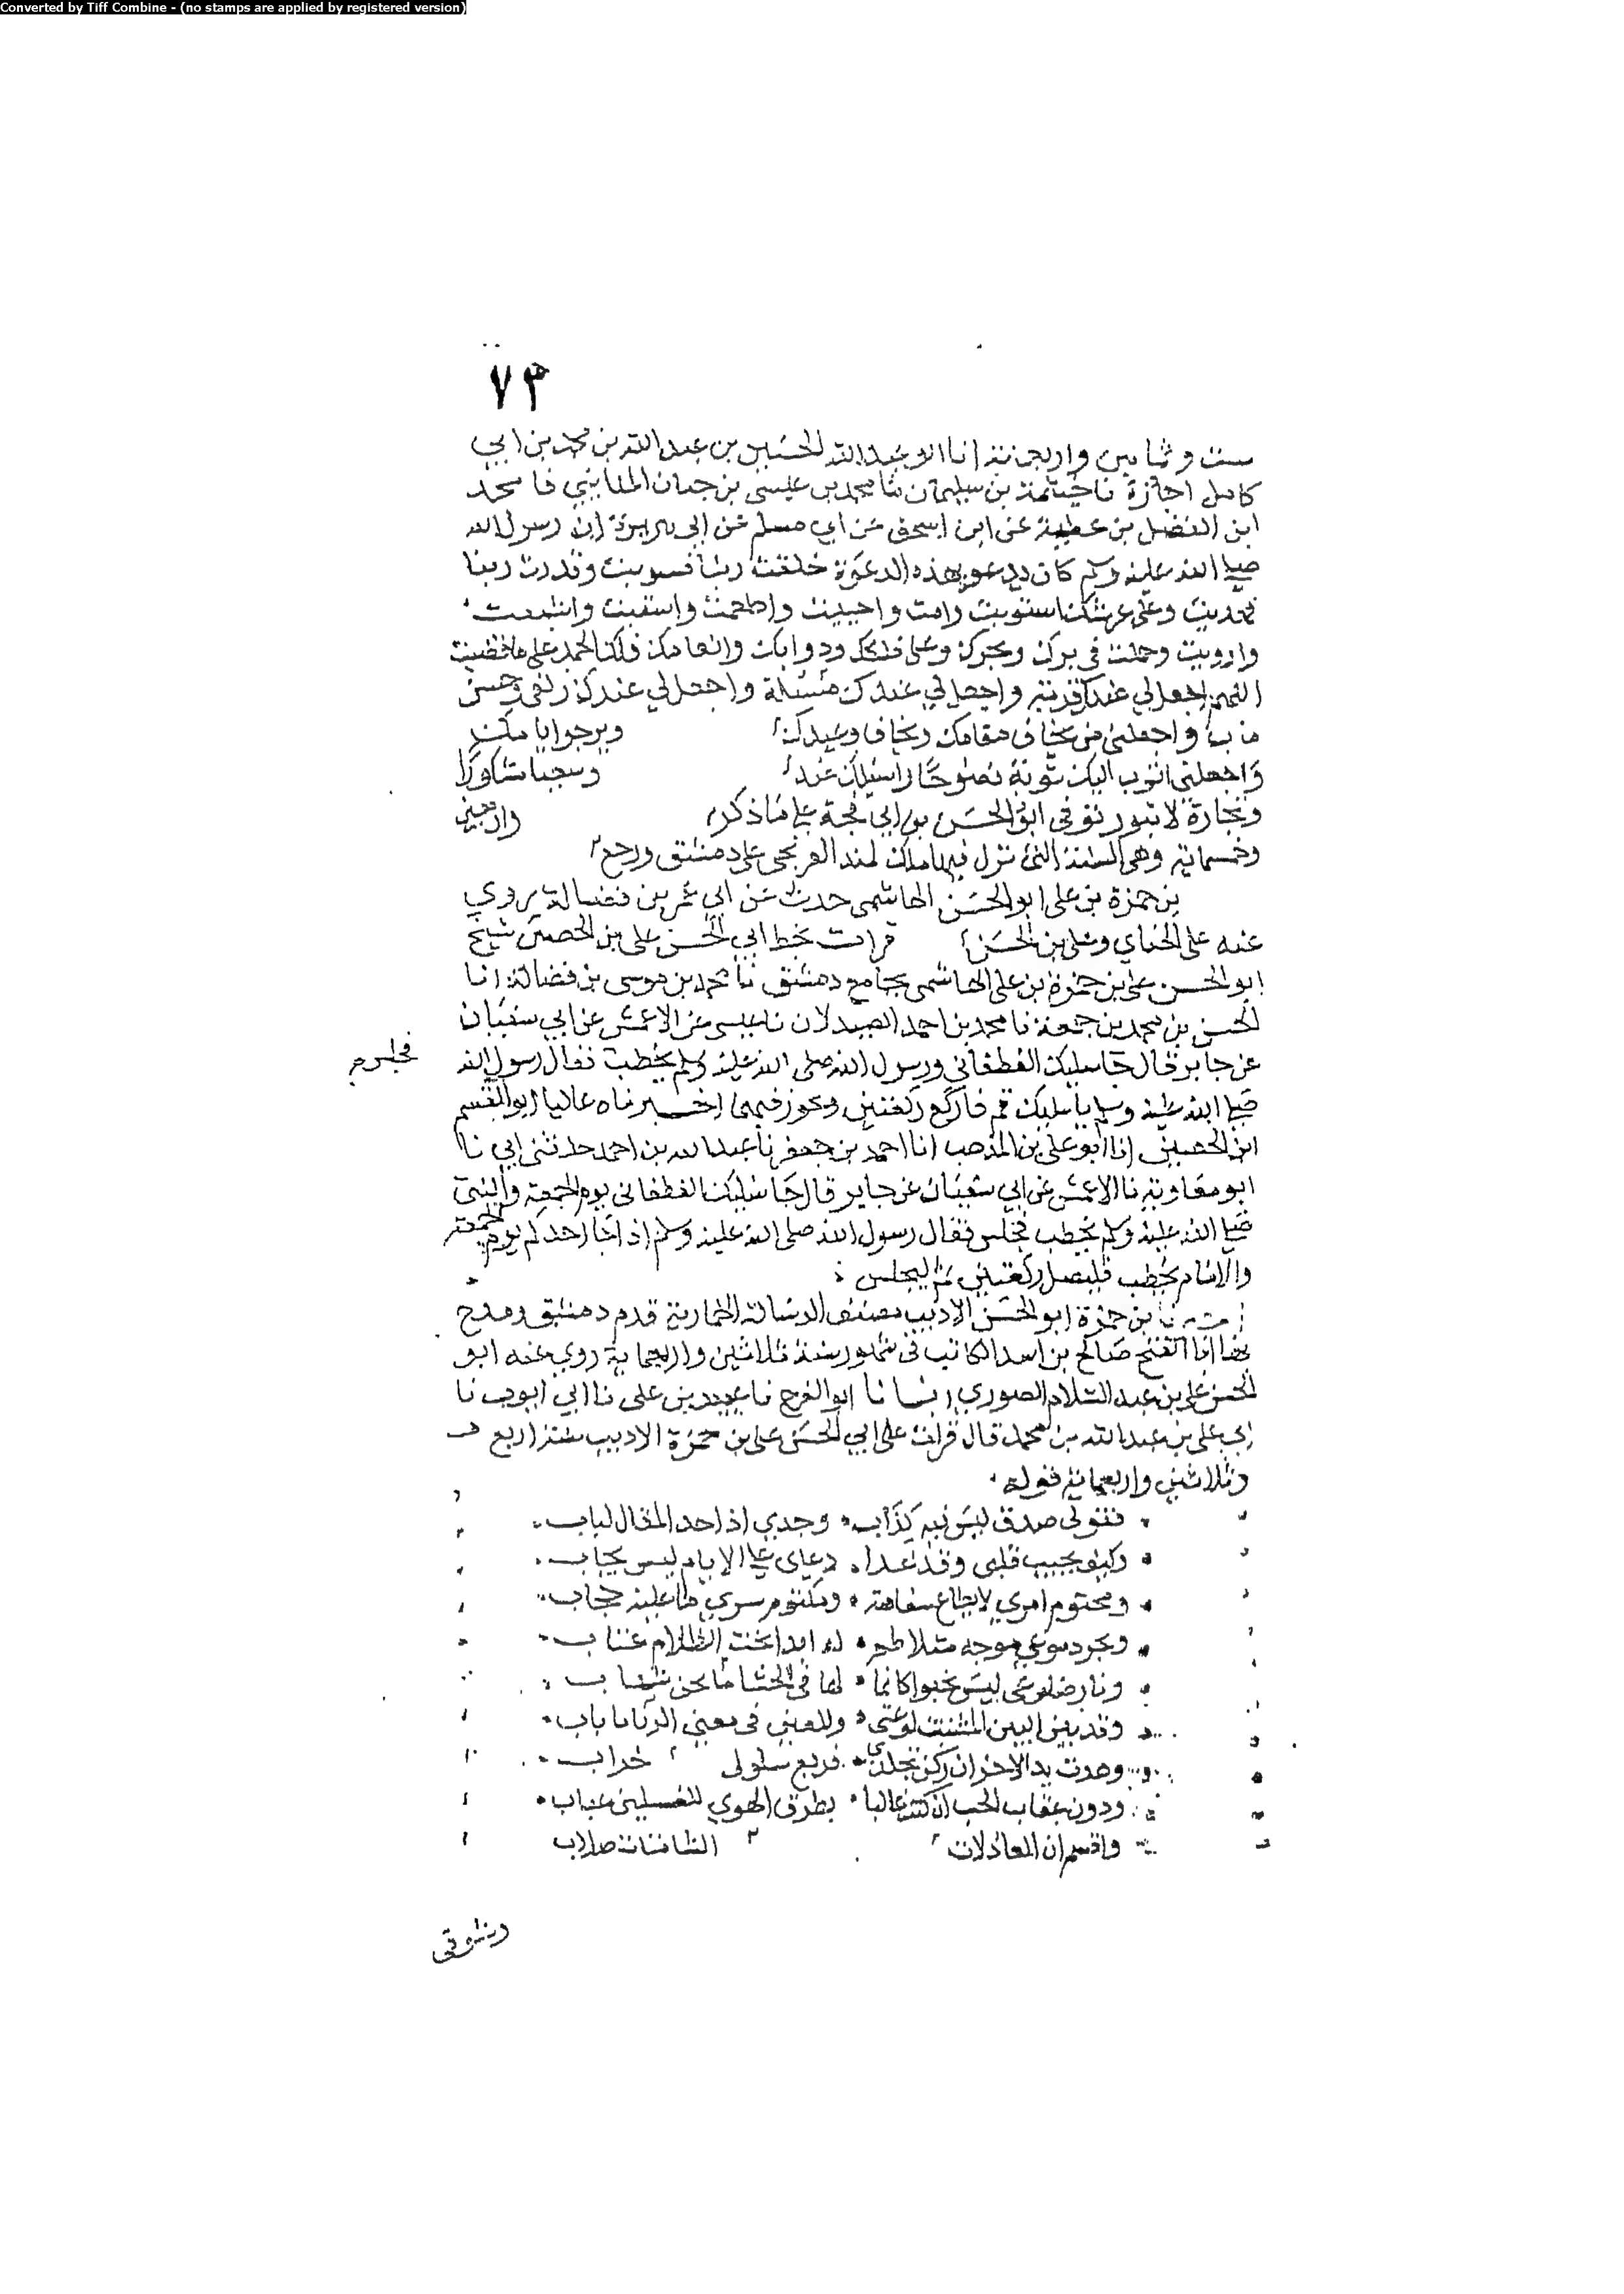 Converted by Tiff Combine - (no stamps are applied by registered version)
٧٣
ست وثمانين واربعمائة انا ابو عبد الله الحسين بن عبد الله بن محمد بن ابي
كامل اجازة نا خيثمة بن سليمان نا محمد بن عيسى بن حيان المدايني نا محمد
ابن الفضل بن عطية عن ابن اسحق عن ابي مسلم عن ابي هريرة ان رسول الله
صلى الله عليه وسلم كان يدعو بهذه الدعوة خلقت ربنا فسويت وقدرت ربنا
وعلى عرشك استويت وامت واحييت واطعمت واسقيت
وارويت وحملت في برك وبحرك وعلى فلكك ودوابك وانعامك فلك الحمد على ما قضيت
اللهم اجعل لي عندك قربة واجعل لي عندك واجعل لي عندك زلفى وحسن
ماب واجعلني ممن يخاف مقامك ويخاف وعيدك ويرجوا
واجعلني اتوب اليك توبة نصوحا
وتجارة لا تبور توفي ابو الحسن بن ابي فجة على ما ذكر واربعين
وخمسماية وهي السنة التي نزل فيها ملك الفرنجي على دمشق ورجع
بن حمزة بن علي ابو الحسن الهاشمي حدث عن ابي عمر بن فضالة روى
عنه علي الحناي وعلي بن الحسن قرات بخط ابي الحسن علي بن الخضر شيخ
ابو الحسن علي بن حمزة بن علي الهاشمي بجامع دمشق نا محمد بن موسى بن فضالة انا
الحسن بن محمد بن جمعة نا محمد بن احمد الصيدلان نا عيسى عن الاعمش عن ابي سفيان
عن جابر قال جا سليك الغطفاني ورسول الله صلى الله عليه وسلم يخطب فقال رسول الله
فجلس
صلى الله عليه وسلم يا سليك قم فاركع ركعتين وتجوز فيهما اخبرناه عاليا ابو القسم
ابن الحصين انا ابو علي بن المذهب انا احمد بن جعفر نا عبد الله بن احمد حدثني ابي نا
ابو معاوية نا الاعمش عن ابي سفيان عن جابر قال جا سليك الغطفاني يوم الجمعة والنبي
صلى الله عليه وسلم يخطب فجلس فقال رسول الله صلى الله عليه وسلم اذا جا احدكم يوم الجمعة
والامام يخطب فليصل ركعتين ثم ليجلس
بن حمزة ابو الحسن الاديب مصنف الرسالة الحمارية قدم دمشق ومدح
بها الفتح صالح بن اسد الكاتب في شهور سنة ثلاثين واربعماية روى عنه ابو
الحسن علي بن عبد السلام الصوري انبانا ابو الفرج نا
ابي علي بن عبد الله بن محمد قال قرات على ابي الحسن علي بن حمزة الاديب سنة اربع
وثلاثين واربعمائة قوله
فقولي صدق ليس فيه كذاب وجدي اذا جد المقال لباب
وكيف يجيب قلبي وقد غدا دعاي على الايام ليس يجاب
ومحتوم امري لا يطاع سفاهة ومكتوم سري ما عليه حجاب
وبحر دموعي موجه متلاطم له ابدا تحت الظلام عباب
ونار ضلوعي ليس تخبوا كانما لها في الحشا شهاب
وقد بين البين المشتت لوعتي وللعين في معنى الرباب
وهدت يد الاحزان ركن تجلدي فربع سلوى خراب
ودون عقاب الحب ان كنت عالما بطرق الهوى للنفس عقاب
واقسم ان العاذلات صلاب
وشوقى